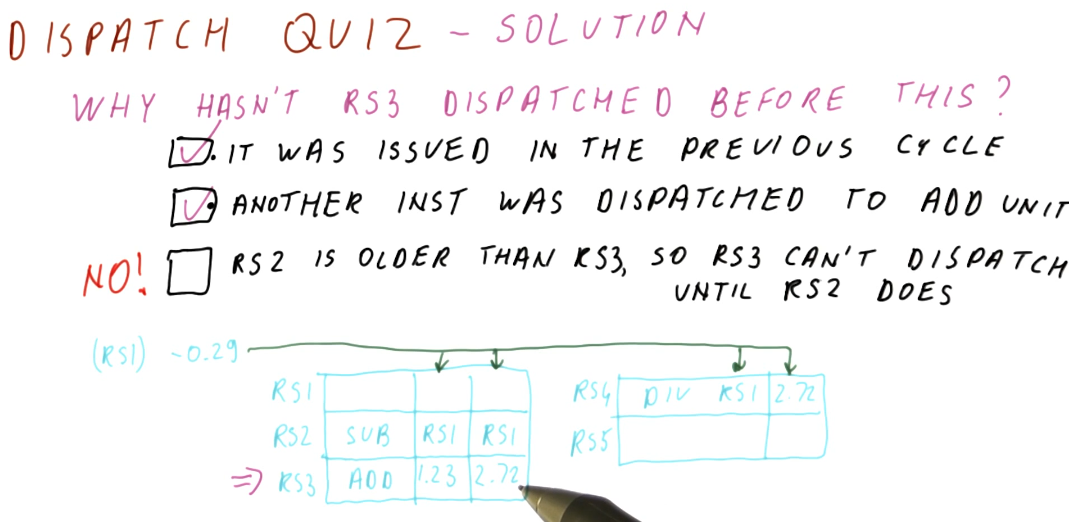 DISPATCH QUIZ - SOLUTION
WHY HASN'T RS3 DISPATCHED BEFORE THIS?
IT WAS ISSUED IN THE PREVIOUS CYCLE
ANOTHER INST WAS DISPATCHED TO ADD UNIT
NO! RS2 IS OLDER THAN RS3, SO RS3 CAN'T DISPATCH
UNTIL RS2 DOES
(RS1) -0.29
RS1
RS2 SUB RS1 RS1
⇒ RS3 ADD 1.23 2.72
RS4 DIV RS1 2.72
RS5